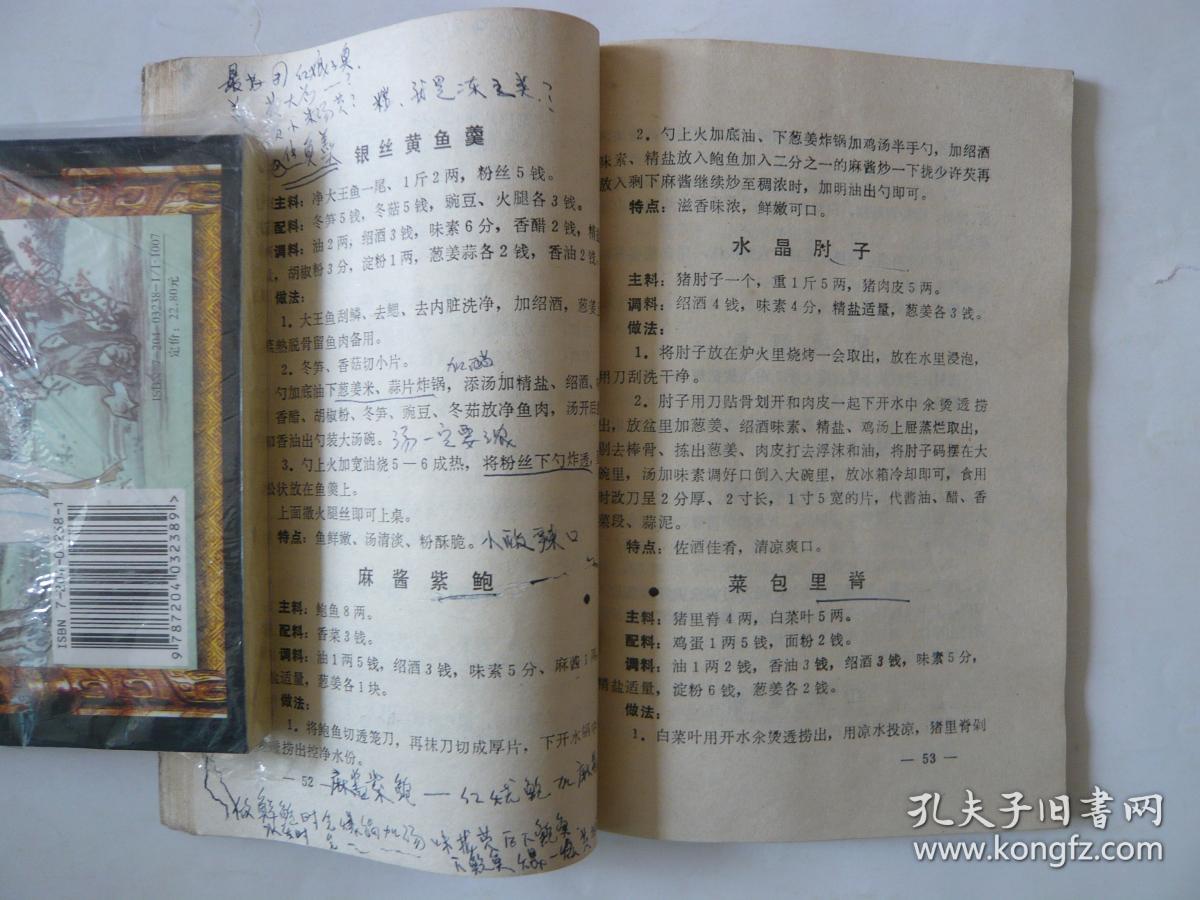 最好用红娘鱼
银丝黄鱼羹
主料：净大王鱼一尾、1斤2两，粉丝5钱。
配料：冬笋5钱，冬菇5钱，豌豆、火腿各3钱。
调料：油2两，绍酒3钱，味素6分，香醋2钱，精
胡椒粉3分，淀粉1两，葱姜蒜各2钱，香油2钱
做法：
1．大王鱼刮鳞、去鳃、去内脏洗净，加绍酒，葱姜
蒸熟脱骨留鱼肉备用。
2．冬笋、香菇切小片。
加醋
勺加底油下葱姜米、蒜片炸锅，添汤加精盐、绍酒、
香醋、胡椒粉、冬笋、豌豆、冬茹放净鱼肉，汤开后
和香油出勺装大汤碗。
汤一定要浓
3．勺上火加宽油烧5－6成热，将粉丝下勺炸透，
公状放在鱼羹上。
上面撒火腿丝即可上桌。
特点：鱼鲜嫩、汤清淡、粉酥脆。
小酸辣口
麻酱紫鲍
主料：鲍鱼8两。
配料：香菜3钱。
调料：油1两5钱，绍酒3钱，味素5分、麻酱1两
盐适量，葱姜各1块。
做法：
1．将鲍鱼切透笼刀，再抹刀切成厚片，下开水锅中
捞出控净水份。
— 52
麻酱紫鲍 — 红烧鲍加麻酱
2．勺上火加底油、下葱姜炸锅加鸡汤半手勺，加绍酒
味素、精盐放入鲍鱼加入二分之一的麻酱炒一下拢少许芡再
放入剩下麻酱继续炒至稠浓时，加明油出勺即可。
特点：滋香味浓，鲜嫩可口。
水晶肘子
主料：猪肘子一个，重1斤5两，猪肉皮5两。
调料：绍酒4钱，味素4分，精盐适量，葱姜各3钱。
做法：
1．将肘子放在炉火里烧烤一会取出，放在水里浸泡，
用刀刮洗干净。
2．肘子用刀贴骨划开和肉皮一起下开水中氽烫透捞
出，放盆里加葱姜、绍酒味素、精盐、鸡汤上屉蒸烂取出，
剔去棒骨、拣出葱姜、肉皮打去浮沫和油，将肘子码摆在大
碗里，汤加味素调好口倒入大碗里，放冰箱冷却即可，食用
时改刀呈2分厚、2寸长，1寸5宽的片，代酱油、醋、香
菜段、蒜泥。
特点：佐酒佳肴，清凉爽口。
菜包里脊
主料：猪里脊4两，白菜叶5两。
配料：鸡蛋1两5钱，面粉2钱。
调料：油1两2钱，香油3钱，绍酒3钱，味素5分，
精盐适量，淀粉6钱，葱姜各2钱。
做法：
1．白菜叶用开水氽烫透捞出，用凉水投凉，猪里脊剁
— 53 —
ISBN 7-204-03238-1/J·1007
定价：22.80元
ISBN 7-204-03238-1
9 787204 032389 >
孔夫子旧书网
www.kongfz.com